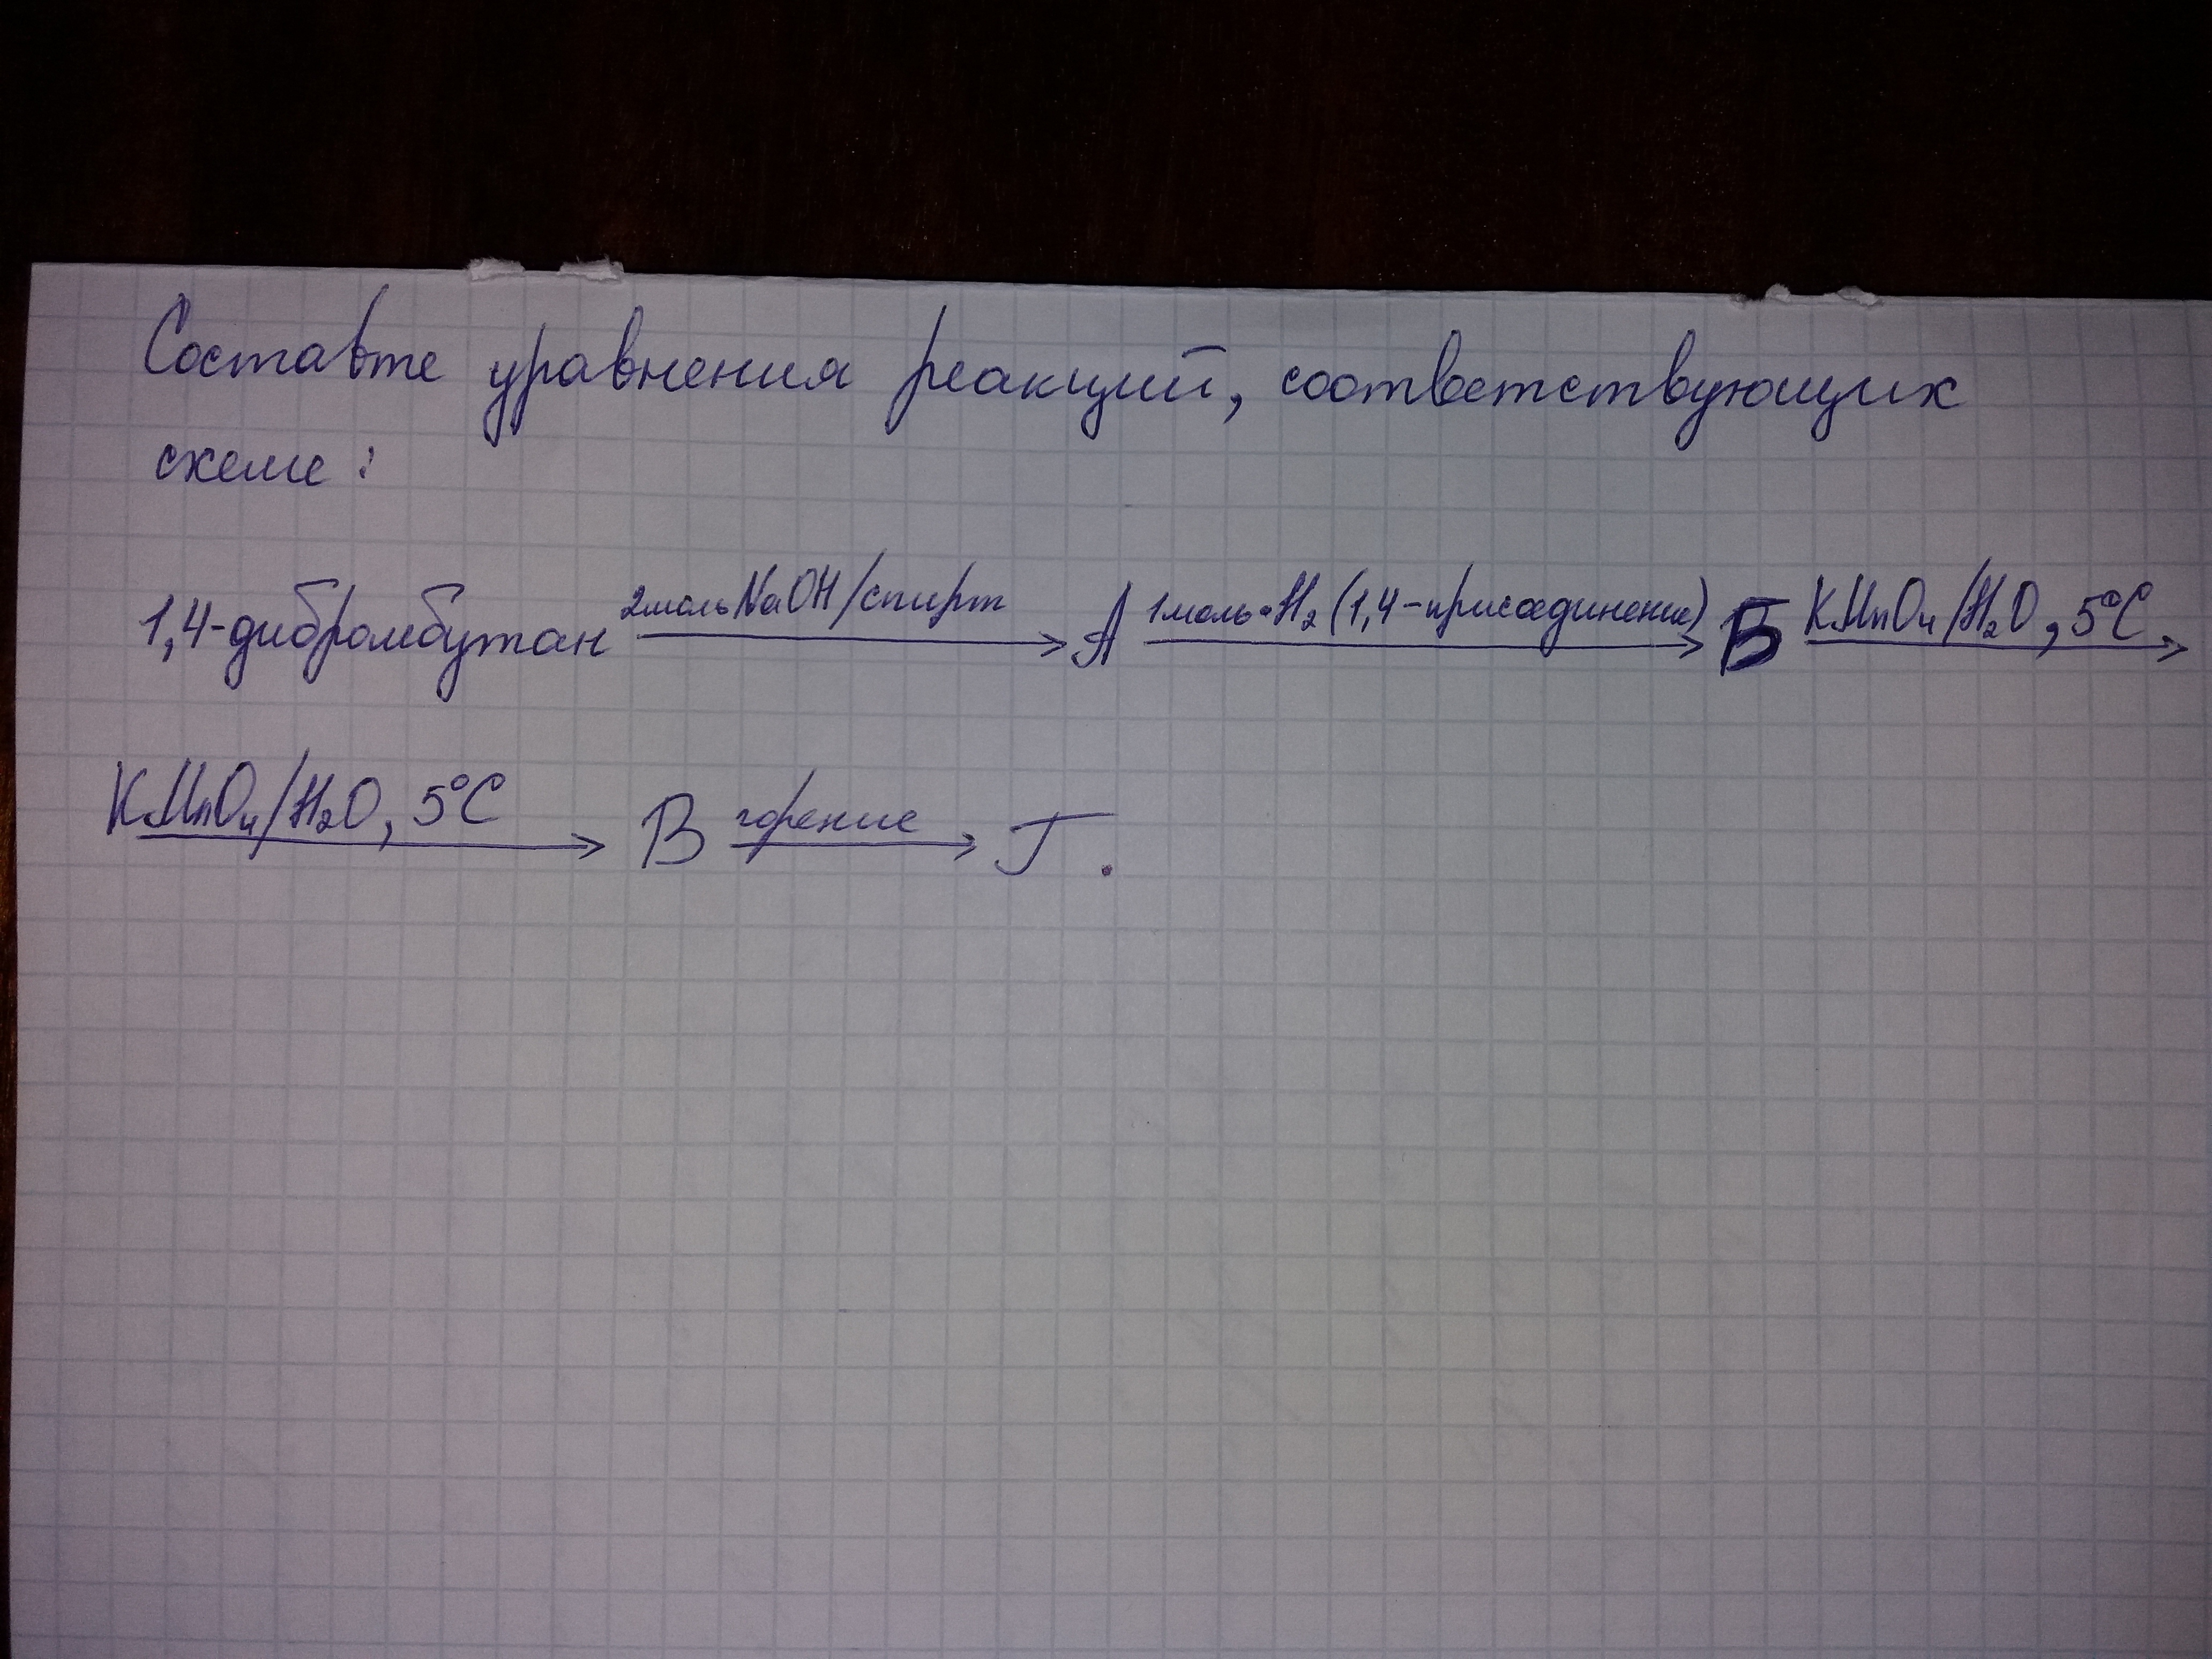 Составте уравнения реакций, соответствующих
схеме:
1,4-дибромбутан 2моль NaOH/спирт → А 1моль H₂ (1,4-присоединение) → Б KMnO₄/H₂O, 5°C →
KMnO₄/H₂O, 5°C → В горение → Г.